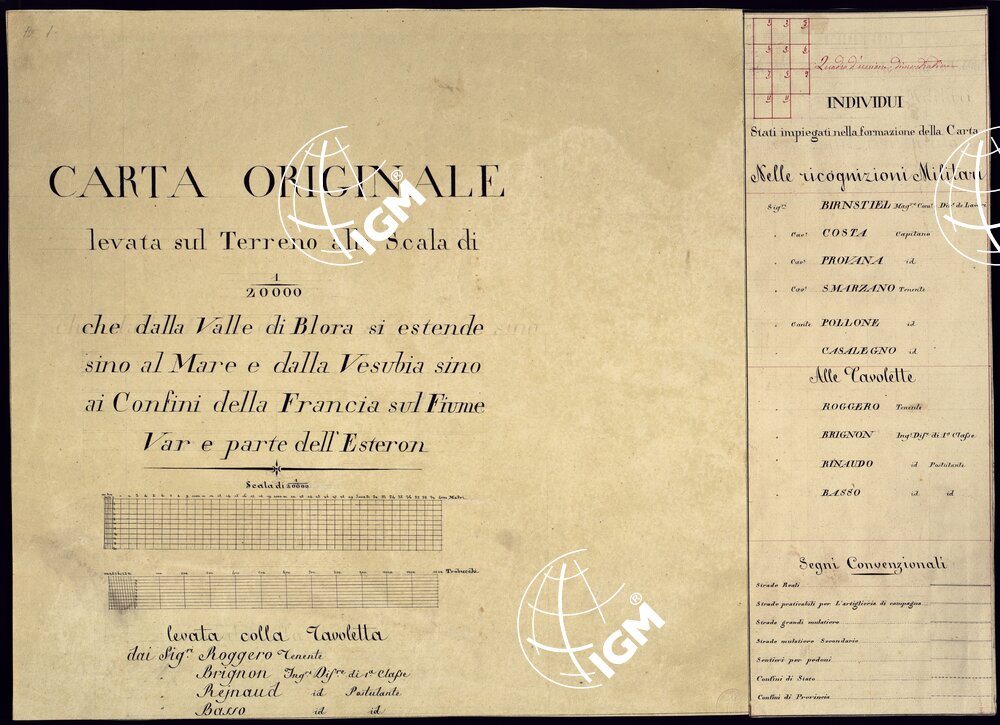 CARTA ORIGINALE
levata sul Terreno alla Scala di
1
20000
che dalla Valle di Blora si estende
sino al Mare e dalla Vesubia sino
ai Confini della Francia sul Fiume
Var e parte dell'Esteron
Scala di 1/20000
Metri
Trabucchi
levata colla Tavoletta
dai Sigri Roggero Tenente
Brignon Ingre Disre di 1a Classe
Rejnaud id Postulante
Basso id id
3 3 3
5 5 5
7 5 9
11 11
Quadro d'unione dimostrativo
INDIVIDUI
Stati impiegati nella formazione della Carta
Nelle ricognizioni Militari
Sigri BIRNSTIEL Magre
Cavr COSTA Capitano
Cavr PROVANA id
Cavr S MARZANO Tenente
Conte POLLONE id
CASALEGNO id
Alle Tavolette
ROGGERO Tenente
BRIGNON Ingre Disre di 1a Classe
RINAUDO id Postulante
BASSO id id
Segni Convenzionali
Strade Reali
Strade praticabili per L'artiglieria di campagna
Strade grandi mulatiere
Strade mulatiere Secondarie
Sentieri per pedoni
Confini di Stato
Confini di Provincia
IGM®
IGM®